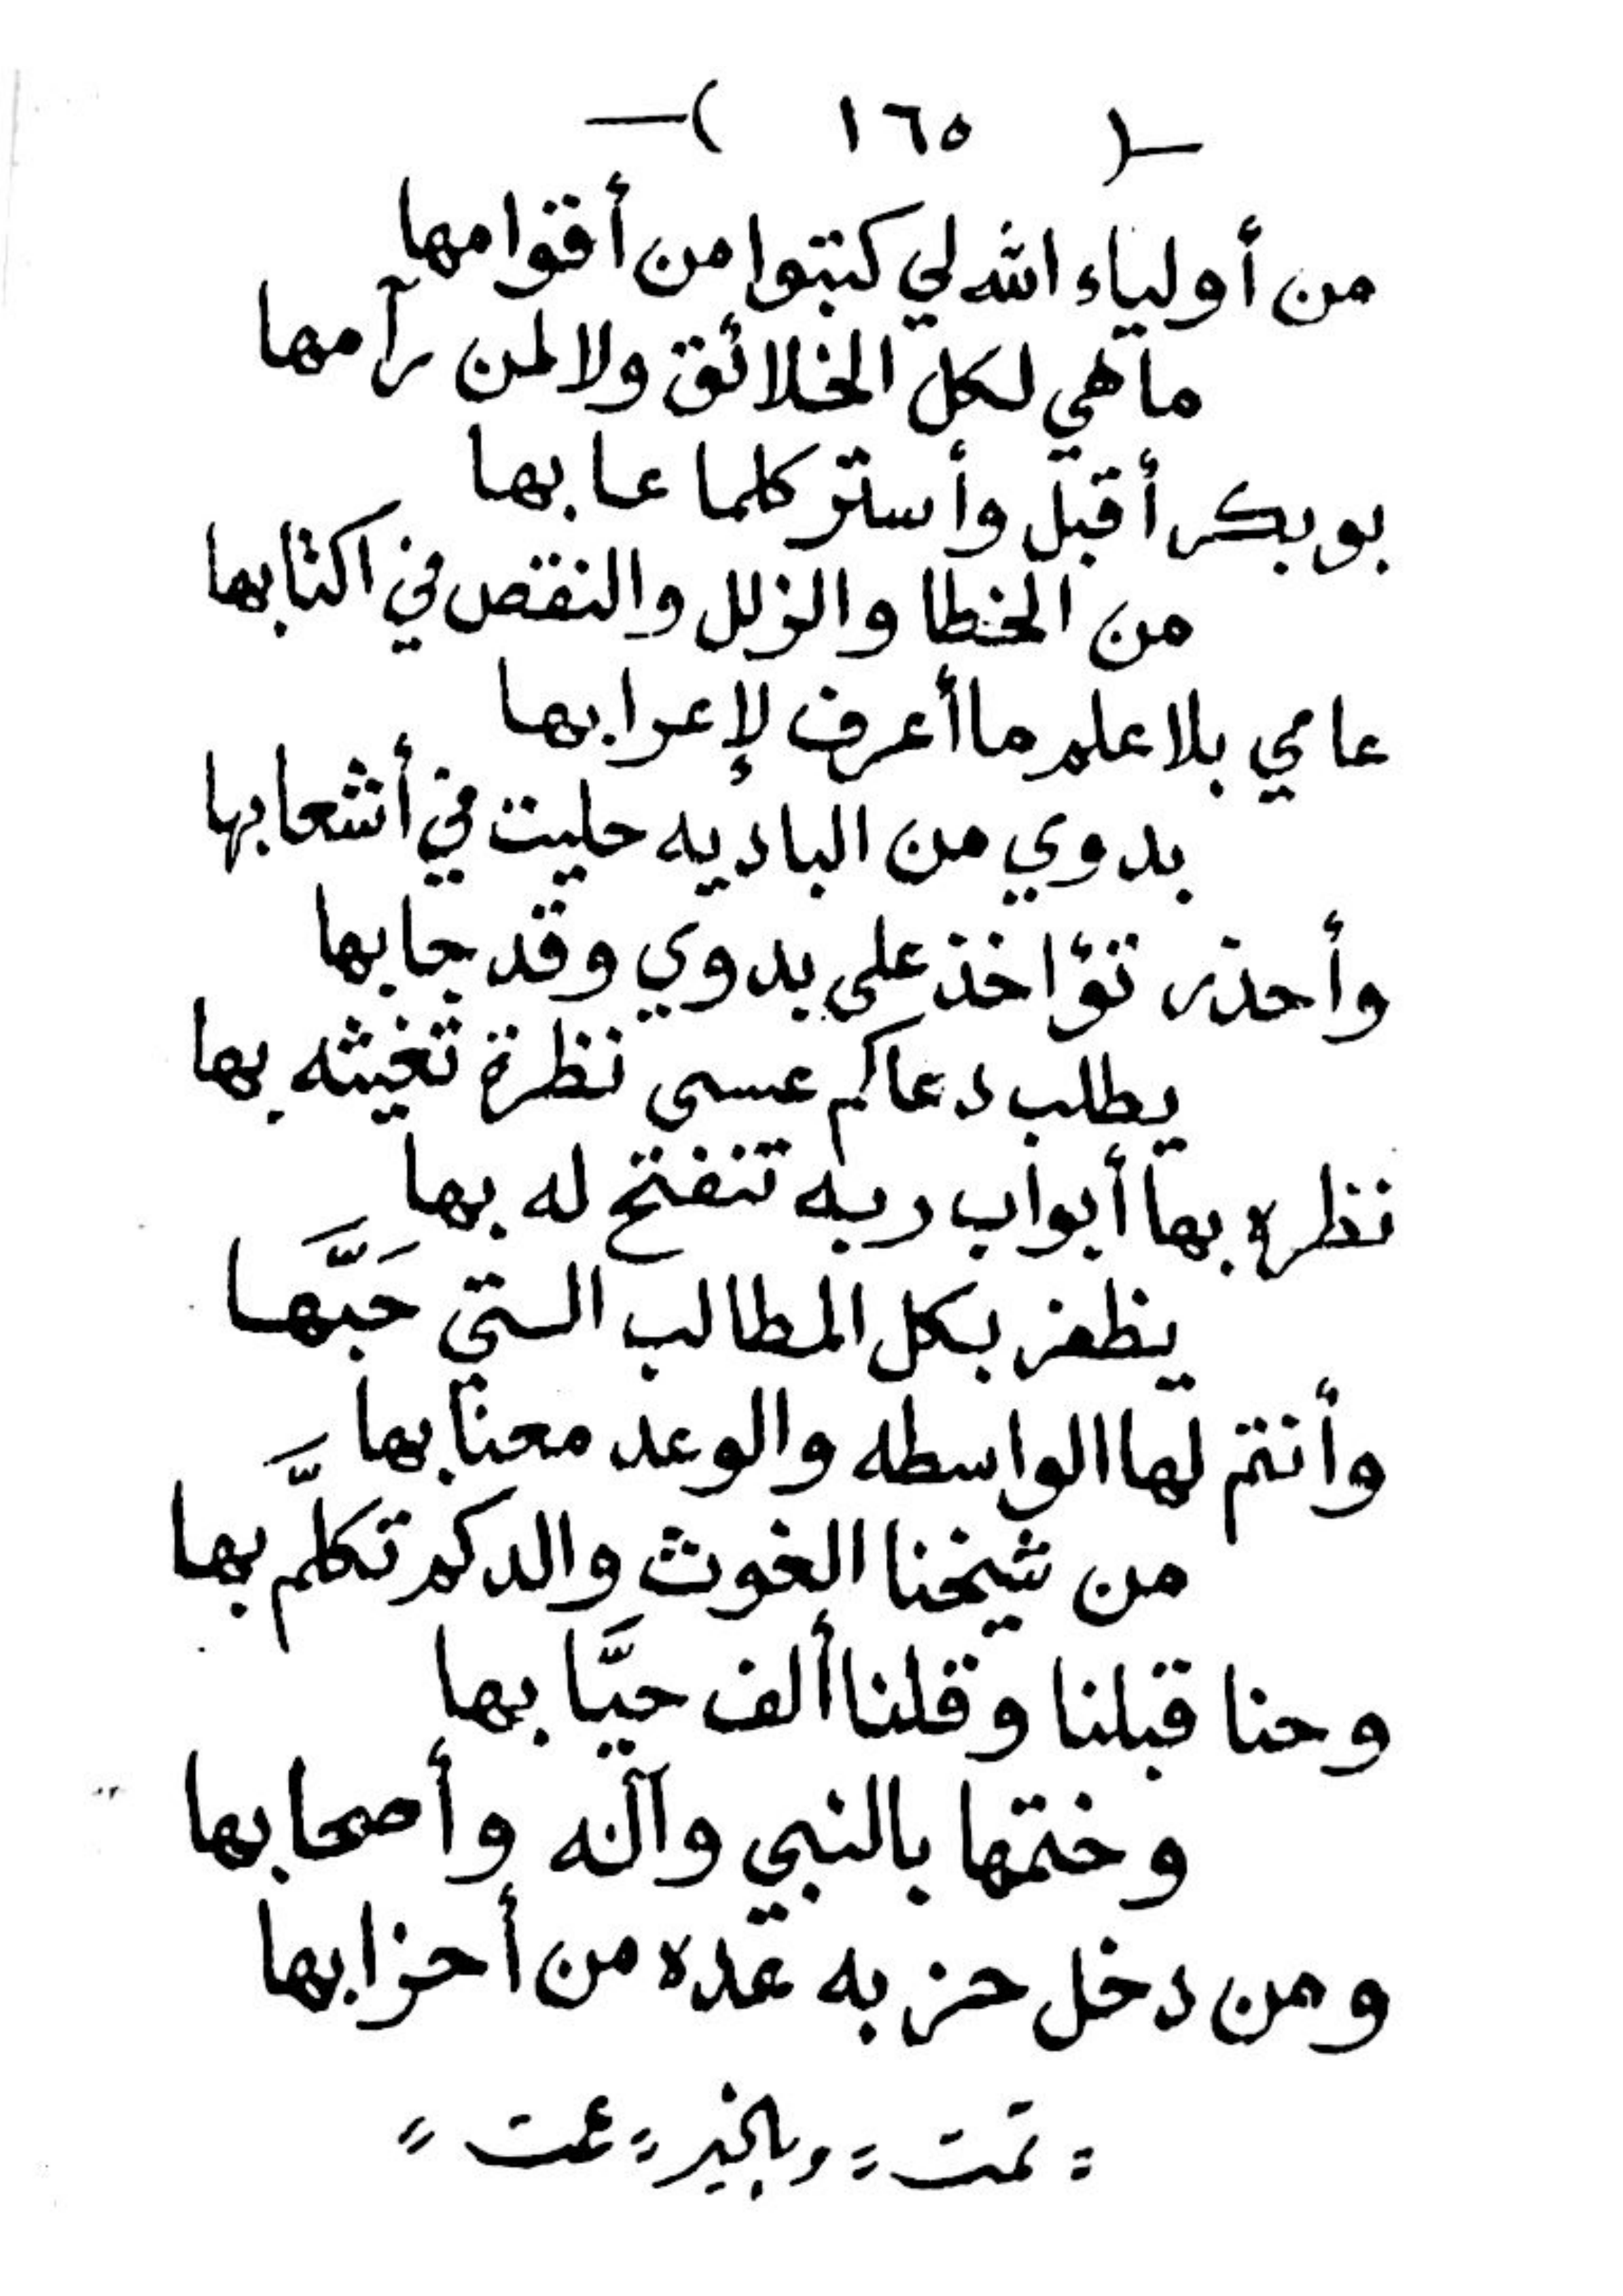 —( ١٦٥ )—
من أولياء الله لي كتبوا من أقوامها
ماهي لكل الخلائق ولا لمن رآمها
بوبكر أقبل وأستر كلما عابها
من الخطا والزلل والنقص في اكتابها
عامي بلا علم ما أعرف لإعرابها
بدوي من الباديه حليت في أشعابها
وأحذر تؤاخذ على بدوي وقد جابها
يطلب دعاكم عسى نظرة تغيثه بها
نظره بها أبواب ربه تنفتح له بها
يظفر بكل المطالب التي حَبَّها
وأنتم لها الواسطه والوعد معنا بها
من شيخنا الغوث والدكم تكلَّم بها
وحنا قبلنا وقلنا ألف حيَّا بها
وختمها بالنبي وآله وأصحابها
ومن دخل حزبه عده من أحزابها
= تمت = وبالخير = عمت =